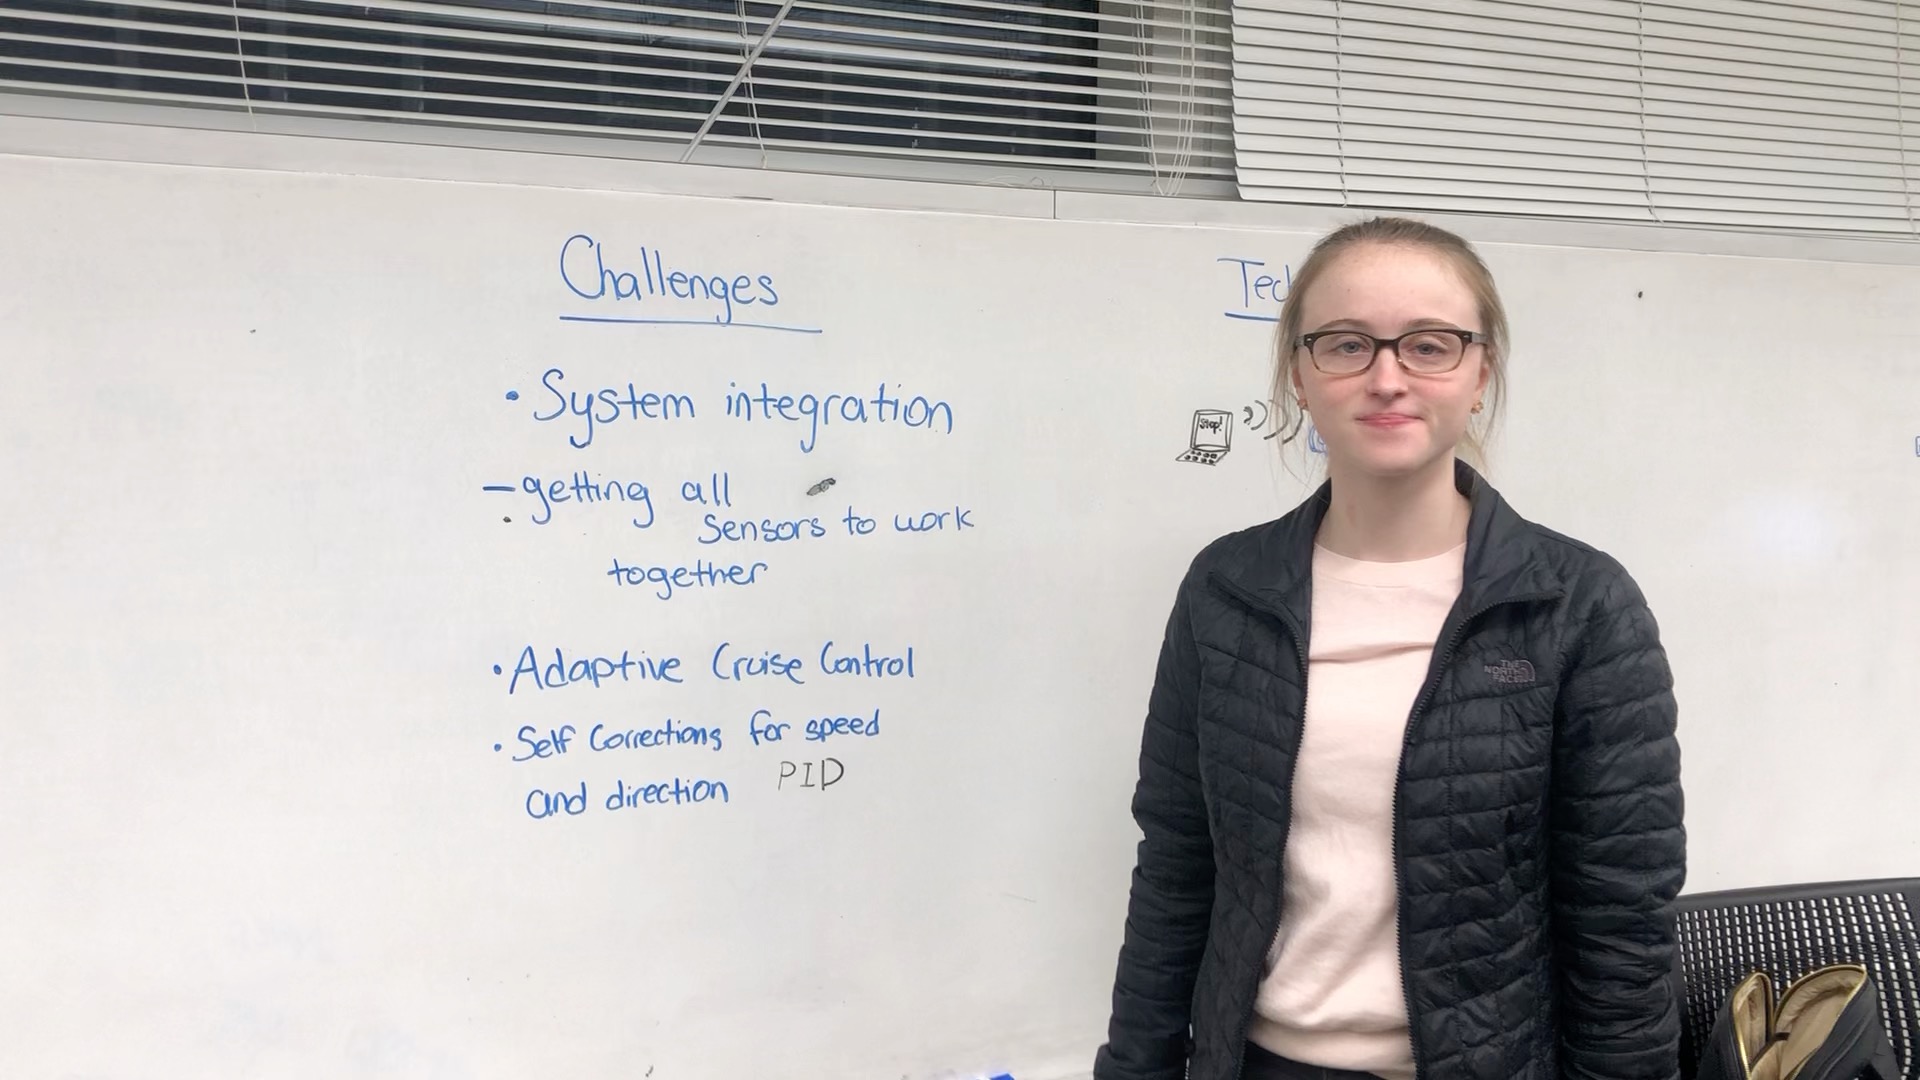 Challenges
• System integration
– getting all
sensors to work
together
• Adaptive Cruise Control
• Self Corrections for speed
and direction PID
Stop!
THE
NORTH
FACE